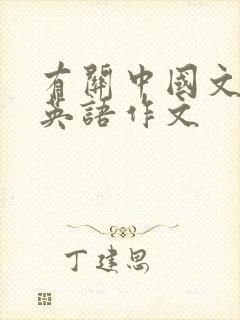 有關中國文
英語作文
丁建思